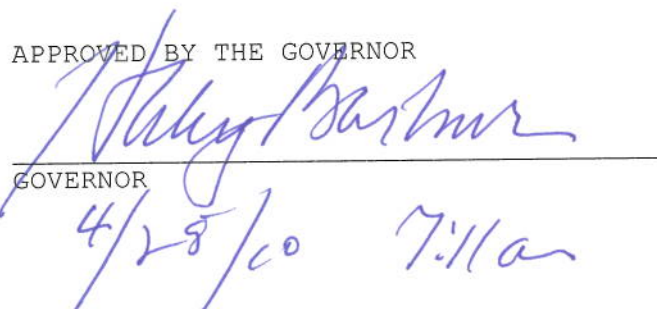 APPROVED BY THE GOVERNOR
Haley Barbour
GOVERNOR
4/28/10 7:11am